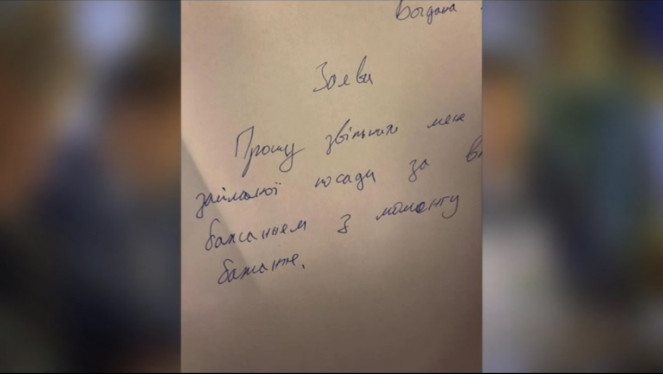 Богдана
Заява
Прошу звільнити мене
займаної посади за вл
бажанням з моменту
бажання.